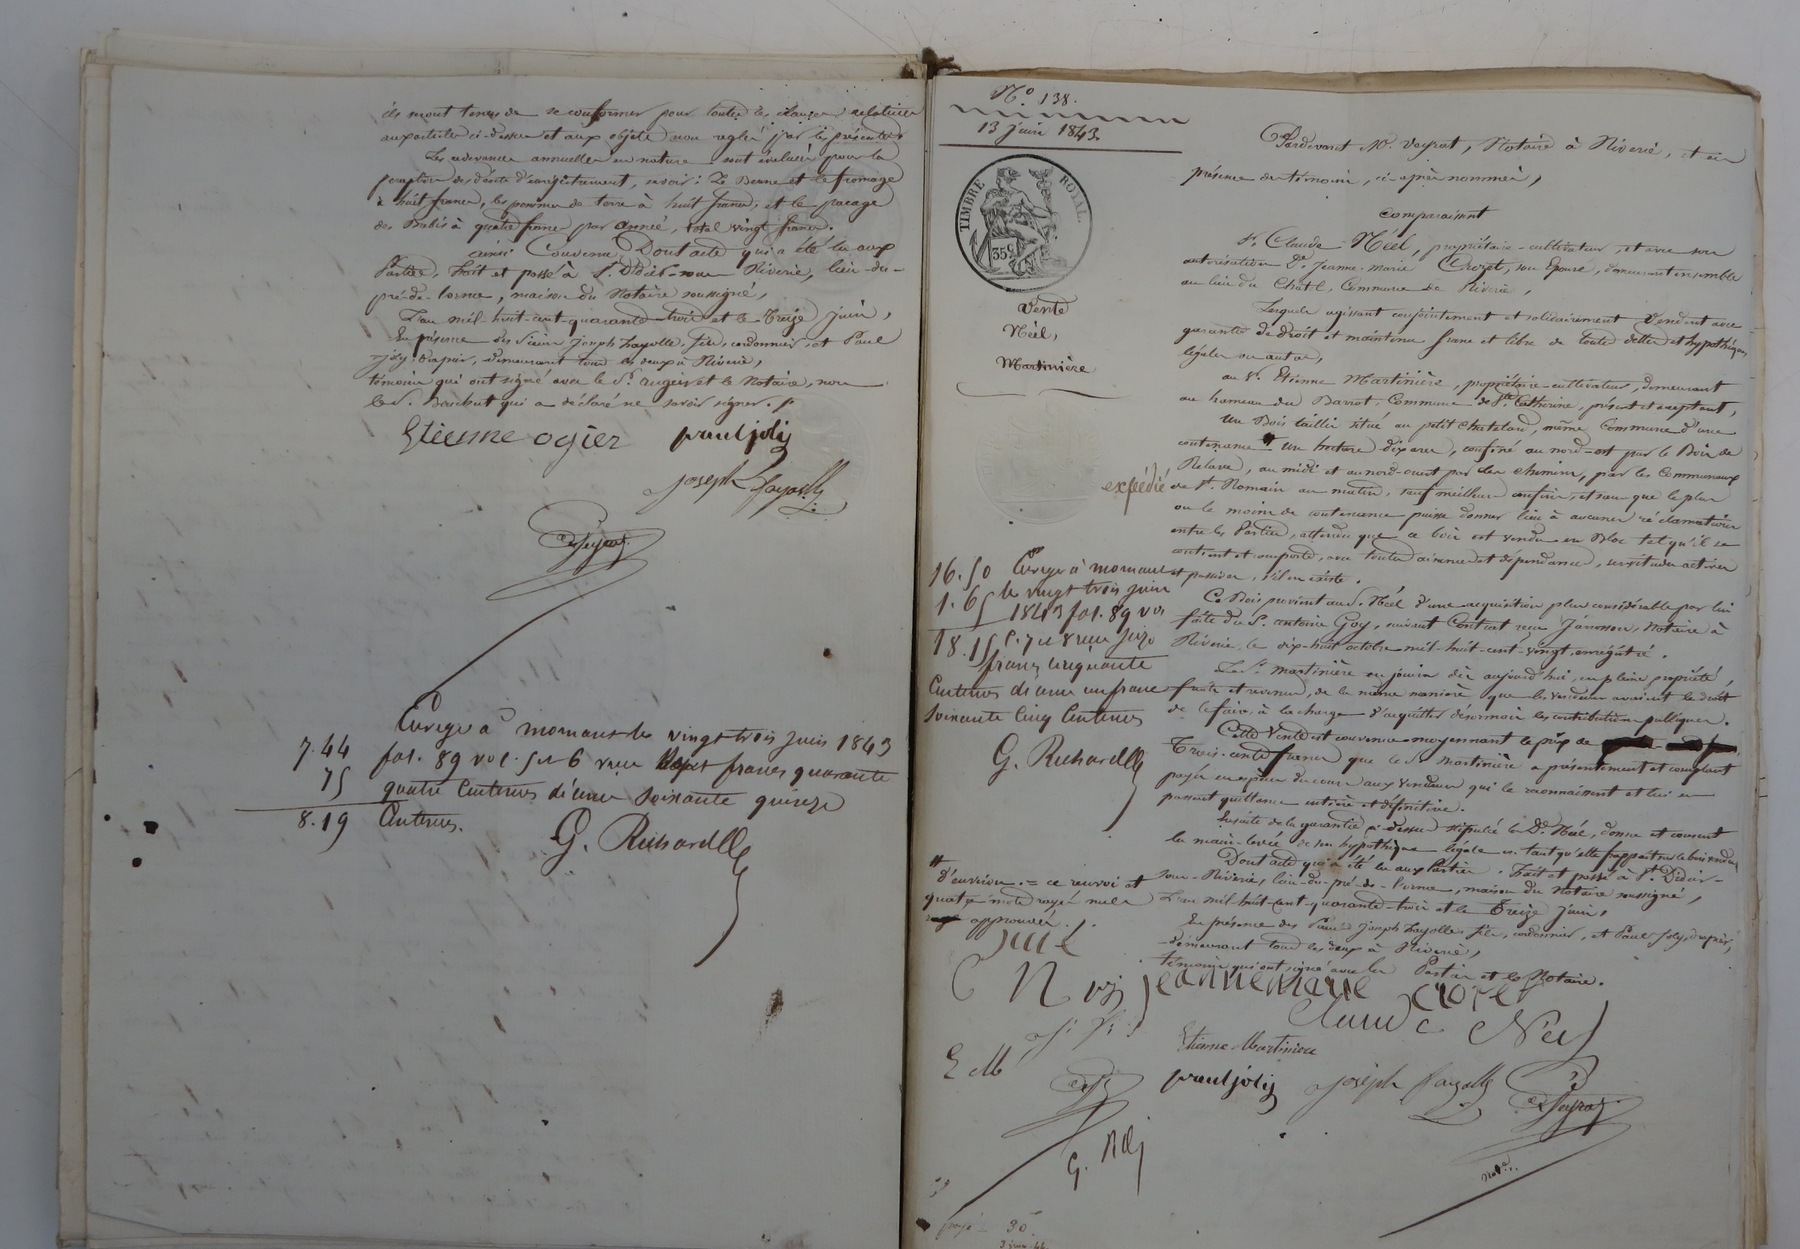 ils seront tenus de se conformer pour toutes les clauses relatives
aux articles ci-dessus et aux objets non réglés par les présentes
Les redevances annuelles en nature sont évaluées pour la
perception des droits d'enregistrement, savoir: Le Beurre et le fromage
à huit francs, les pommes de terre à huit francs, et le pacage
des Brebis à quatre francs par année, total vingt francs.
ainsi Convenu, Dont acte qui a été lu aux
Parties. Fait et passé à St. Didier-sous Riverie, lieu-du-
pré-de-lorme, maison du Notaire soussigné,
L'an mil-huit-cent-quarante-trois et le Treize juin,
En présence des Sieurs Joseph Fayolle, fils, cordonnier, et Paul
Joly, drapier, demeurant tous les deux à Riverie,
témoins qui ont signé avec le S. augier et le Notaire, non
le S. qui a déclaré ne savoir signer. /.
Etienne ogier paul joly
joseph fayolle
Veyrat
Enregé à mornant le vingt trois juin 1843
7.44 fol. 89 vol. 5 et 6 reçu sept francs quarante
75 quatre Centimes dixième soixante quinze
8.19 Centimes.
G. Richard
N.º 138.
13 juin 1843.
TIMBRE ROYAL
35 c
Vente
Néel,
Martinière
expédié
16.50 Enregé à mornant
1.65 le vingt trois juin
1843 fol. 89 vo.
18.15 c. 7 et 8 reçu seize
francs cinquante
Centimes dixième un franc
soixante cinq Centimes
G. Richard
# d'environ. = ce renvoi et
quatre mots rayés nuls
approuvés. /.
Pardevant Me. Veyrat, Notaire à Riverie, et en
présence des témoins, ci-après nommés,
comparaissent
S. Claude Néel, propriétaire-cultivateur, et avec son
autorisation De. Jeanne-marie Crozet, son Epouse, demeurant ensemble
au lieu du Chatel, Commune de Riverie,
Lesquels agissant conjointement et solidairement Vendent avec
garantie de droit et maintenue franc et libre de toutes dettes et hypothèques
légales ou autres,
au S. Etienne Martinière, propriétaire-cultivateur, demeurant
au hameau du Barrot, Commune de Ste. Catherine, présent et acceptant,
Un Bois taillis situé au petit Chatelard, même Commune d'une
contenance # un hectare dix ares, confiné au nord-est par le Bois de
Relave, au midi et au nord-ouest par des chemins, par les Communaux
de St. Romain au matin, sauf meilleurs confins, et sans que le plus
ou le moins de contenance puisse donner lieu à aucunes réclamations
entre les Parties, attendu que ce bois est vendu en Bloc tel qu'il se
contient et comporte, avec toutes aisances et dépendances, servitudes actives
et passives, s'il en existe.
Ce Bois provient au S. Néel d'une acquisition plus considérable par lui
faite du S. antoine Goy, suivant Contrat reçu Janosson, Notaire à
Riverie, le dix-huit octobre mil-huit-cent-vingt, enregistré.
Le S. Martinière en jouira dès aujourd'hui, en pleine propriété,
fruits et revenus, de la même manière que les Vendeurs avaient le droit
de le faire, à la charge d'acquitter désormais les contributions publiques.
Cette Vente est convenue moyennant le prix de
Trois-cents francs que le S. Martinière a présentement et comptant
payés en espèces du cours aux Vendeurs qui le reconnaissent et lui en
passent quittance entière et définitive.
Ensuite de la garantie ci-dessus stipulée la De. Néel, donne et consent
la main-levée de son hypothèque légale en tant qu'elle frappait sur le bois vendu
Dont acte qui a été lu aux Parties. Fait et passé à St. Didier-
sous-Riverie, lieu-du-pré-de-l'orme, maison du Notaire soussigné,
L'an mil-huit-cent-quarante-trois et le Treize juin,
En présence des Sieurs Joseph Fayolle fils, cordonnier, et Paul Joly, drapier,
demeurant tous les deux à Riverie,
témoins qui ont signé avec les Parties et le Notaire.
C N jeannemarie crozet
Claude Néel
E M Etienne Martiniere
paul joly joseph fayolle Veyrat
G. Rd
Note.
payé 30
3 juin 44